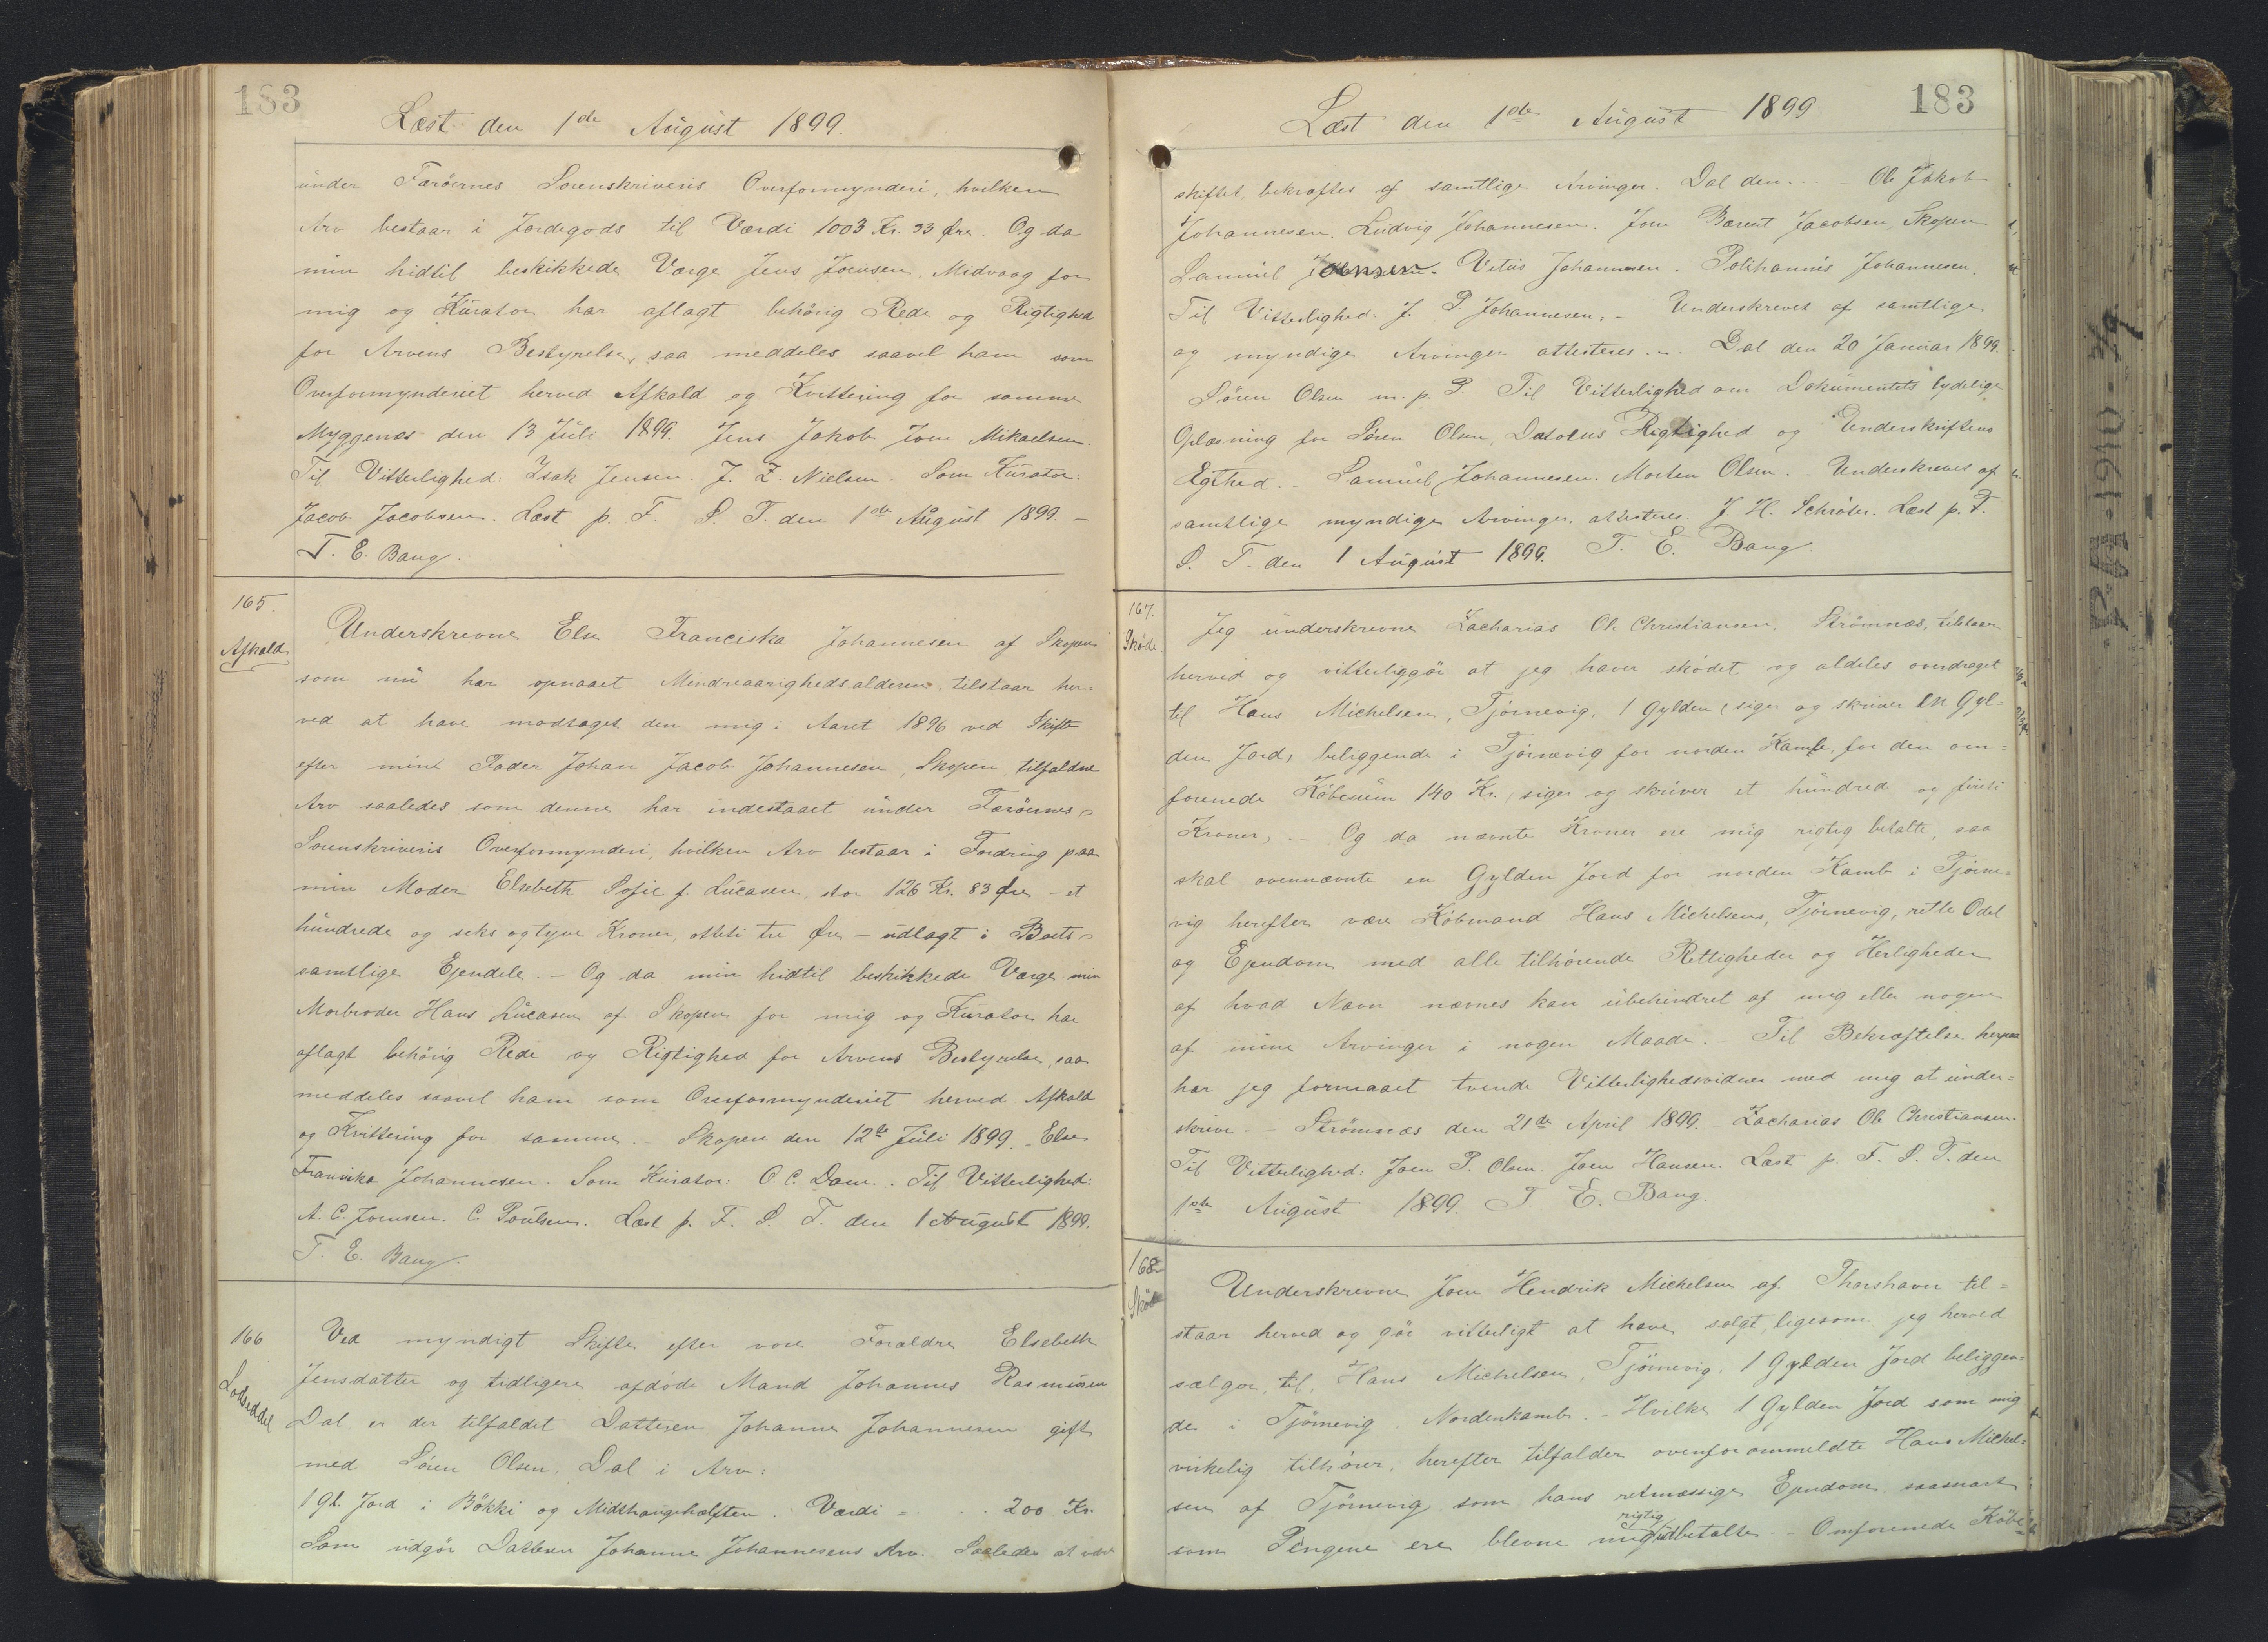 183
Læst den 1de August 1899.
under Færöernes Sorenskriveris Overformynderi, hvilken
Arv bestaar i Jordegods til Værdi 1003 Kr. 33 Øre. Og da
min hidtil beskikkede Værge Jens Joensen, Midvaag for
mig og Kurator har aflagt behörig Rede og Rigtighed
for Arvens Bestyrelse, saa meddeles saavel ham som
Overformynderiet herved Afkald og Kvittering for samme
Myggenæs den 13 Juli 1899. Jens Jakob Joen Mikaelsen.
Til Vitterlighed: Isak Jensen. J. Z. Nielsen. Som Kurator:
Jacob Jacobsen. Læst p. F. S. T. den 1de August 1899. –
T. E. Bang.
165.
Afkald
Underskrevne Else Franciska Johannesen af Skopen
som nu har opnaaet Mindreaarighedsalderen, tilstaar her=
ved at have modtaget den mig i Aaret 1896 ved Skifte
efter mine Fader Johan Jacob Johannesen, Skopen tilfaldne
Arv saaledes som denne har indestaaet under Færöernes
Sorenskriveris Overformynderi, hvilken Arv bestaar i Fordring paa
min Moder Elsebeth Sofie f. Lucasen, stor 126 Kr. 83 Øre – et
hundrede og seks og tyve Kroner, otteti tre Øre – udlagt i Boets
samtlige Ejendele. – Og da min hidtil beskikkede Værge min
Morbroder Hans Lucasen af Skopen for mig og Kurator har
aflagt behörig Rede og Rigtighed for Arvens Bestyrelse, saa
meddeles saavel ham som Overformynderiet herved Afkald
og Kvittering for samme. – Skopen den 12te Juli 1899. – Else
Franciska Johannesen. Som Kurator: O. C. Dam. Til Vitterlighed:
A. C. Joensen. C. Poulsen. Læst p. F. S. T. den 1 August 1899.
T. E. Bang.
166
Lodseddel
Ved myndigt Skifte efter vore Forældre Elsebeth
Jensdatter og tidligere afdöde Mand Johannes Rasmusen
Dal er der tilfaldet Datteren Johanne Johannesen gift
med Sören Olsen, Dal i Arv:
1 Gl. Jord i Bökki og Midthaugehælften. Værdi = . . 200 Kr.
Som udgör Datteren Johanne Johannesens Arv. Saaledes at være
183
Læst den 1de August 1899
skiftet bekræftes af samtlige Arvinger. Dal den . . – Ole Jakob
Johannesen. Ludvig Johannesen. Joen Barent Jacobsen, Skopen
Samuel Joensen. Vitus Johannesen. Polihannis Johannesen.
Til Vitterlighed: J. P. Johannesen. – Underskrevet af samtlige
og myndige Arvinger attesteres. – Dal den 20 Januar 1899.
Sören Olsen m. p. P. Til Vitterlighed om Dokumentets lydelige
Oplæsning for Sören Olsen, Datoens Rigtighed og Underskriftens
Ægthed. – Samuel Johannesen. Morten Olsen. – Underskrevet af
samtlige myndige Arvinger, attesteres. J. H. Schröter. Læst p. F.
S. T. den 1 August 1899. T. E. Bang.
167.
Skøde.
Jeg underskrevne Zacharias Ole Christiansen, Strömnæs, tilstaar
herved og vitterliggör at jeg haver sködet og aldeles overdraget
til Hans Michelsen, Tjörnevig, 1 Gylden (siger og skriver en Gyl=
den Jord) beliggende i Tjörnevig for norden Kamb, for den om=
forenede Köbesum 140 Kr. (siger og skriver et hundred og firti
Kroner). – Og da nævnte Kroner ere mig rigtig betalte, saa
skal ovennævnte en Gylden Jord for norden Kamb i Tjörne=
vig herefter være Köbmand Hans Michelsens, Tjörnevig, rette Odel
og Ejendom med alle tilhörende Rettigheder og Herligheder
af hvad Navn nævnes kan ubehindret af mig eller nogen
af mine Arvinger i nogen Maade. – Til Bekræftelse herpaa
har jeg formaaet tvende Vitterlighedsvidner med mig at under=
skrive. – Strömnæs den 21de April 1899. Zacharias Ole Christiansen.
Til Vitterlighed: Joen P. Olsen. Joen Hansen. Læst p. F. S. T. den
1ste August 1899. T. E. Bang.
168
Skøde
Underskrevne Joen Hendrik Michelsen af Thorshavn til=
staar herved og gör vitterligt at have solgt, ligesom jeg herved
sælger, til Hans Michelsen, Tjörnevig. 1 Gylden Jord beliggen=
de i Tjörnevig, Nordenkamb. – Hvilke 1 Gylden Jord som mig
virkelig tilhörer, herefter tilfalder ovenfor ommeldte Hans Michel=
sen af Tjörnevig, som hans retmæssige Ejendom, saasnart
som Pengene ere blevne mig rigtig udbetalte. – Omforenede Købe=